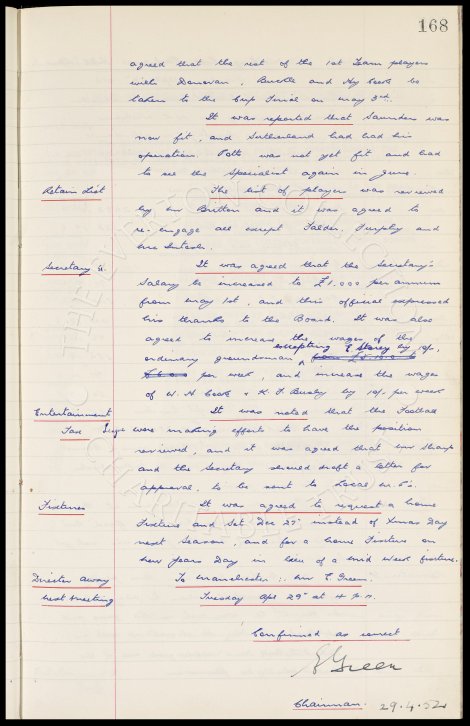 168
agreed that the rest of the 1st Team players
with Donovan, Buckle and Hy Cook be
taken to the Cup Final on May 3rd.
It was reported that Saunders was
now fit, and Sutherland had had his
operation. Potts was not yet fit and had
to see the Specialist again in June.
Retain List The list of players was reviewed
by Mr Britton and it was agreed to
re-engage all except Falder, Murphy and
McIntosh.
Secretary &. It was agreed that the Secretary's
Salary be increased to £1,000 per annum
from May 1st, and this official expressed
his thanks to the Board. It was also
agreed to increase the wages of the
excepting E Storey by 10/-
ordinary groundsman
per week, and increase the wages
of W. H Cook & K. F Busby by 10/- per week
Entertainment It was noted that the Football
Tax League were making efforts to have the position
reviewed, and it was agreed that Mr Sharp
and the Secretary should draft a letter for
approval, to be sent to Local M.P's.
Fixtures It was agreed to request a home
Fixture and Sat Dec 27th instead of Xmas Day
next Season, and for a home Fixture on
New Years Day in lieu of a mid week fixture.
Director Away To Manchester :- Mr E. Green.
Next Meeting Tuesday Apl 29th at 4 p.m.
Confirmed as correct
E Green
Chairman. 29.4.52